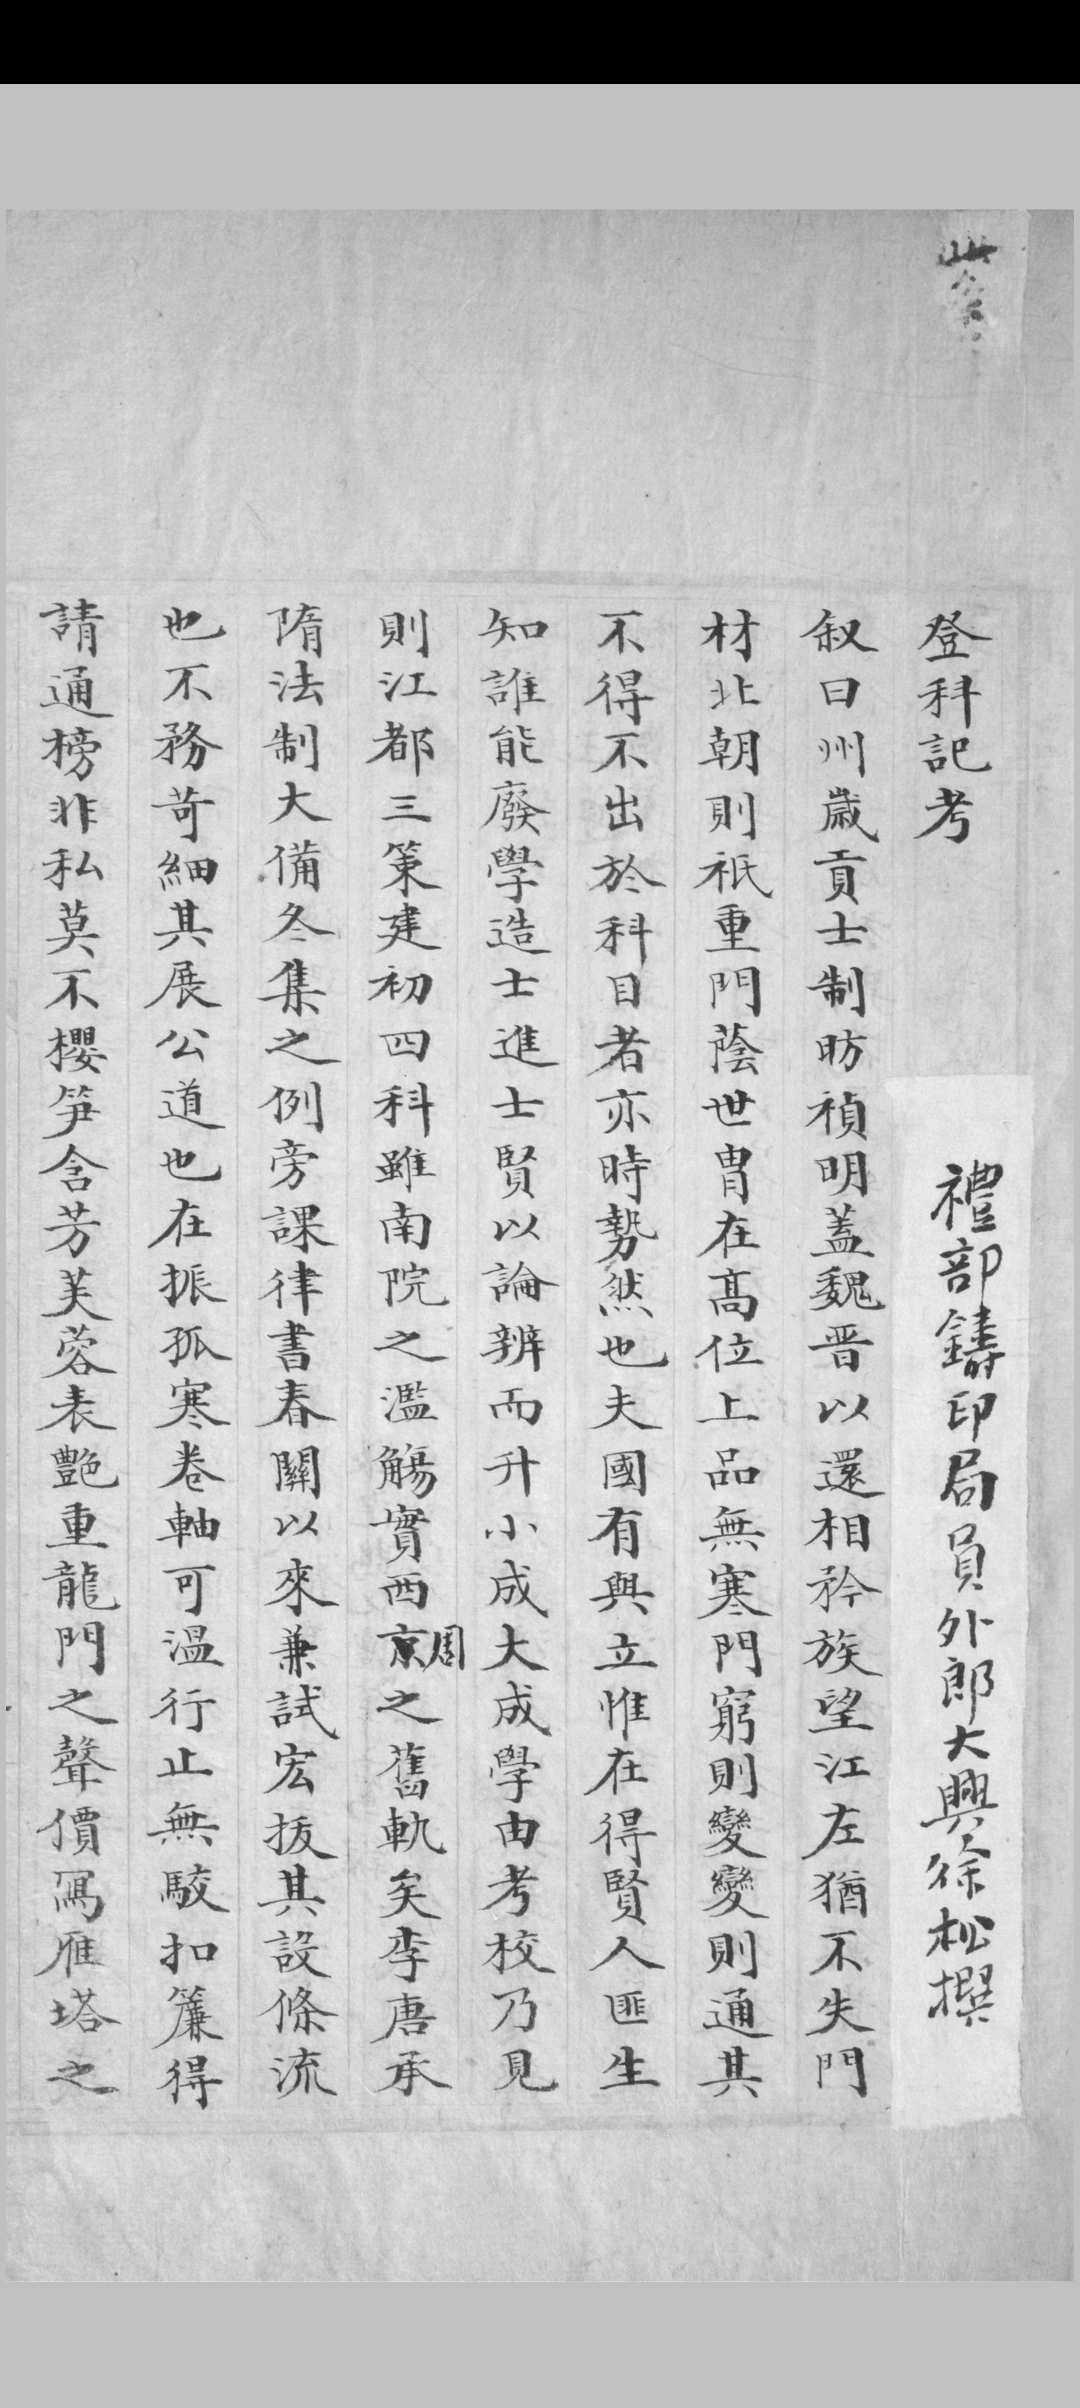 登科記考
禮部鑄印局員外郎大興徐松撰
叙曰州歲貢士制昉禎明蓋魏晉以還相矜族望江左猶不失門
材北朝則祇重門蔭世胄在高位上品無寒門窮則變變則通其
不得不出於科目者亦時勢然也夫國有與立惟在得賢人匪生
知誰能廢學造士進士賢以論辨而升小成大成學由考校乃見
則江都三策建初四科雖南院之濫觴實西京周之舊軌矣李唐承
隋法制大備冬集之例旁課律書春關以來兼試宏拔其設條流
也不務苛細其展公道也在振孤寒卷軸可溫行止無駮扣簾得
請通榜非私莫不櫻笋含芳芙蓉表艷重龍門之聲價寫雁塔之